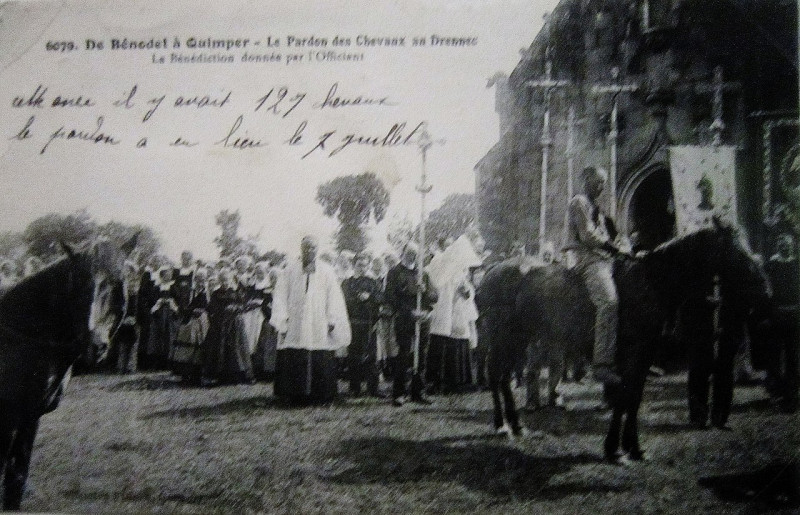 6079. De Bénodet à Quimper - Le Pardon des Chevaux au Drennec
La Bénédiction donnée par l'Officiant
cette anée il y avait 127 chevaux
le pardon a eu lieu le 7 juillet